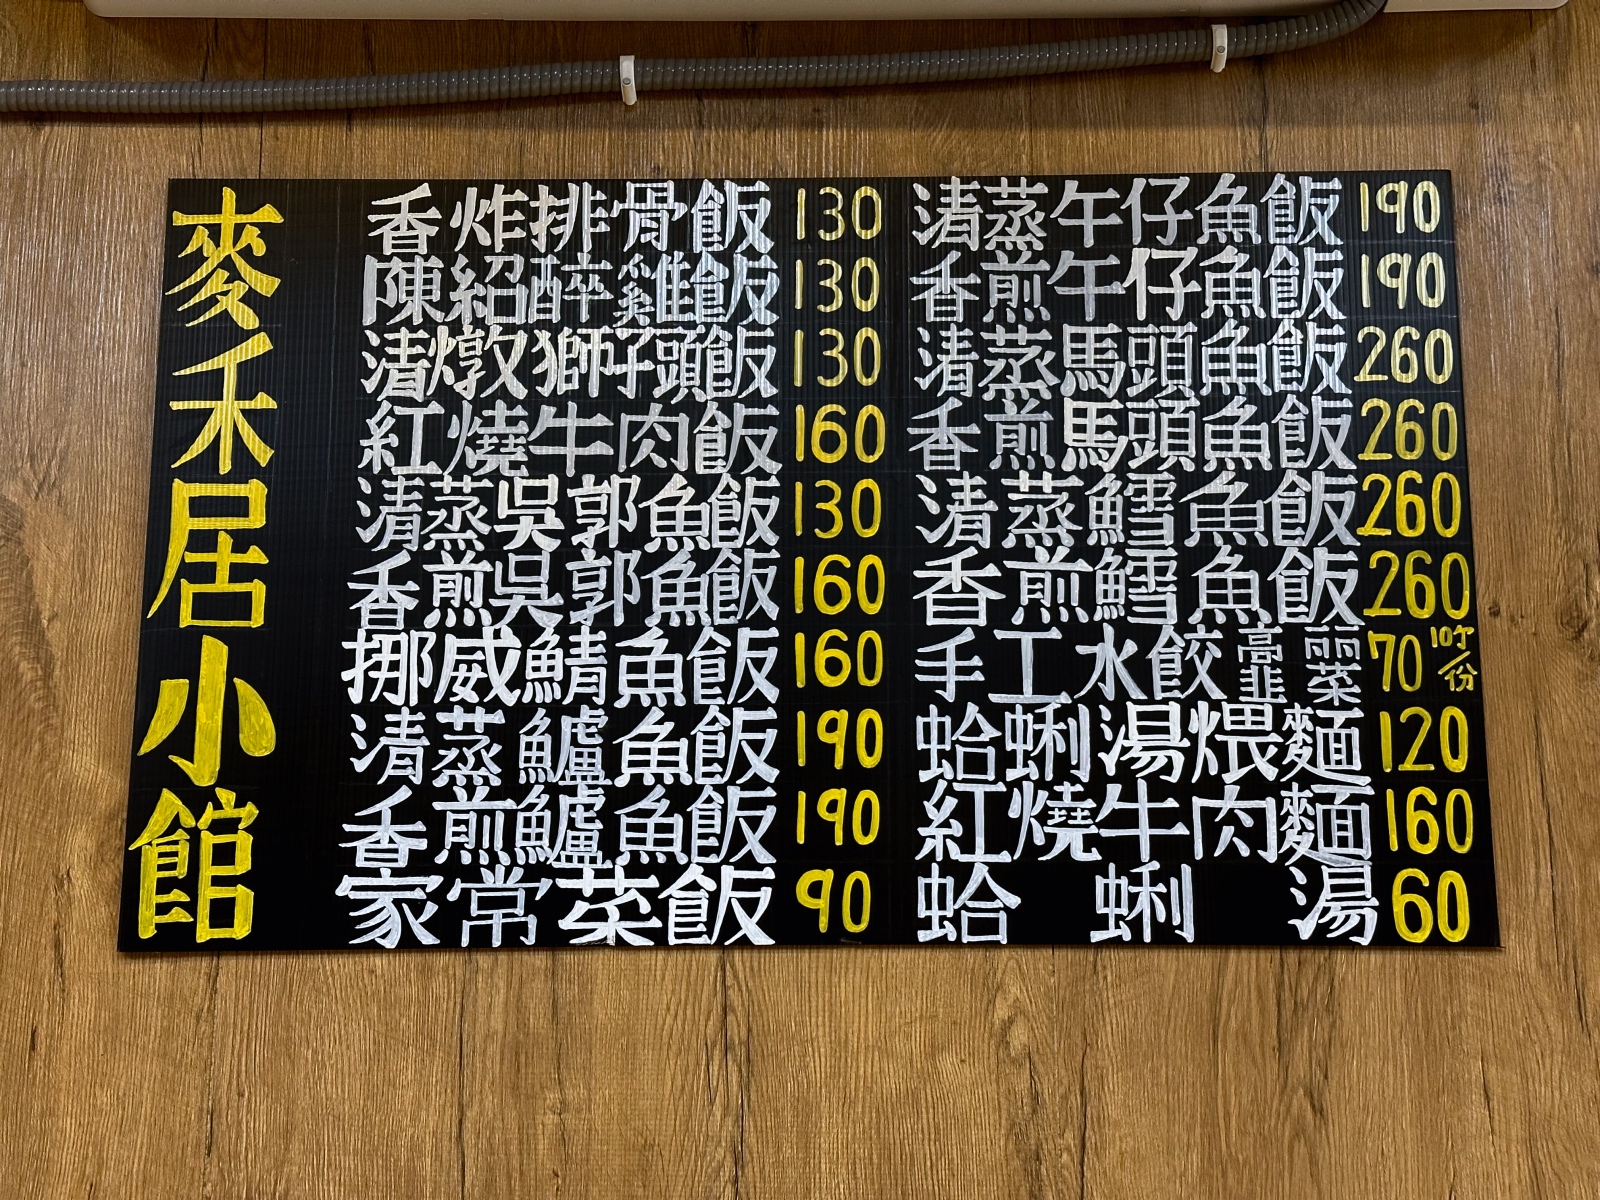 麥禾居小館
香炸排骨飯 130
陳紹醉雞飯 130
清燉獅子頭飯 130
紅燒牛肉飯 160
清蒸吳郭魚飯 130
香煎吳郭魚飯 160
挪威鯖魚飯 160
清蒸鱸魚飯 190
香煎鱸魚飯 190
家常菜飯 90
清蒸午仔魚飯 190
香煎午仔魚飯 190
清蒸馬頭魚飯 260
香煎馬頭魚飯 260
清蒸鱈魚飯 260
香煎鱈魚飯 260
手工水餃 高麗菜 韭菜 70 10个/份
蛤蜊湯煨麵 120
紅燒牛肉麵 160
蛤蜊湯 60